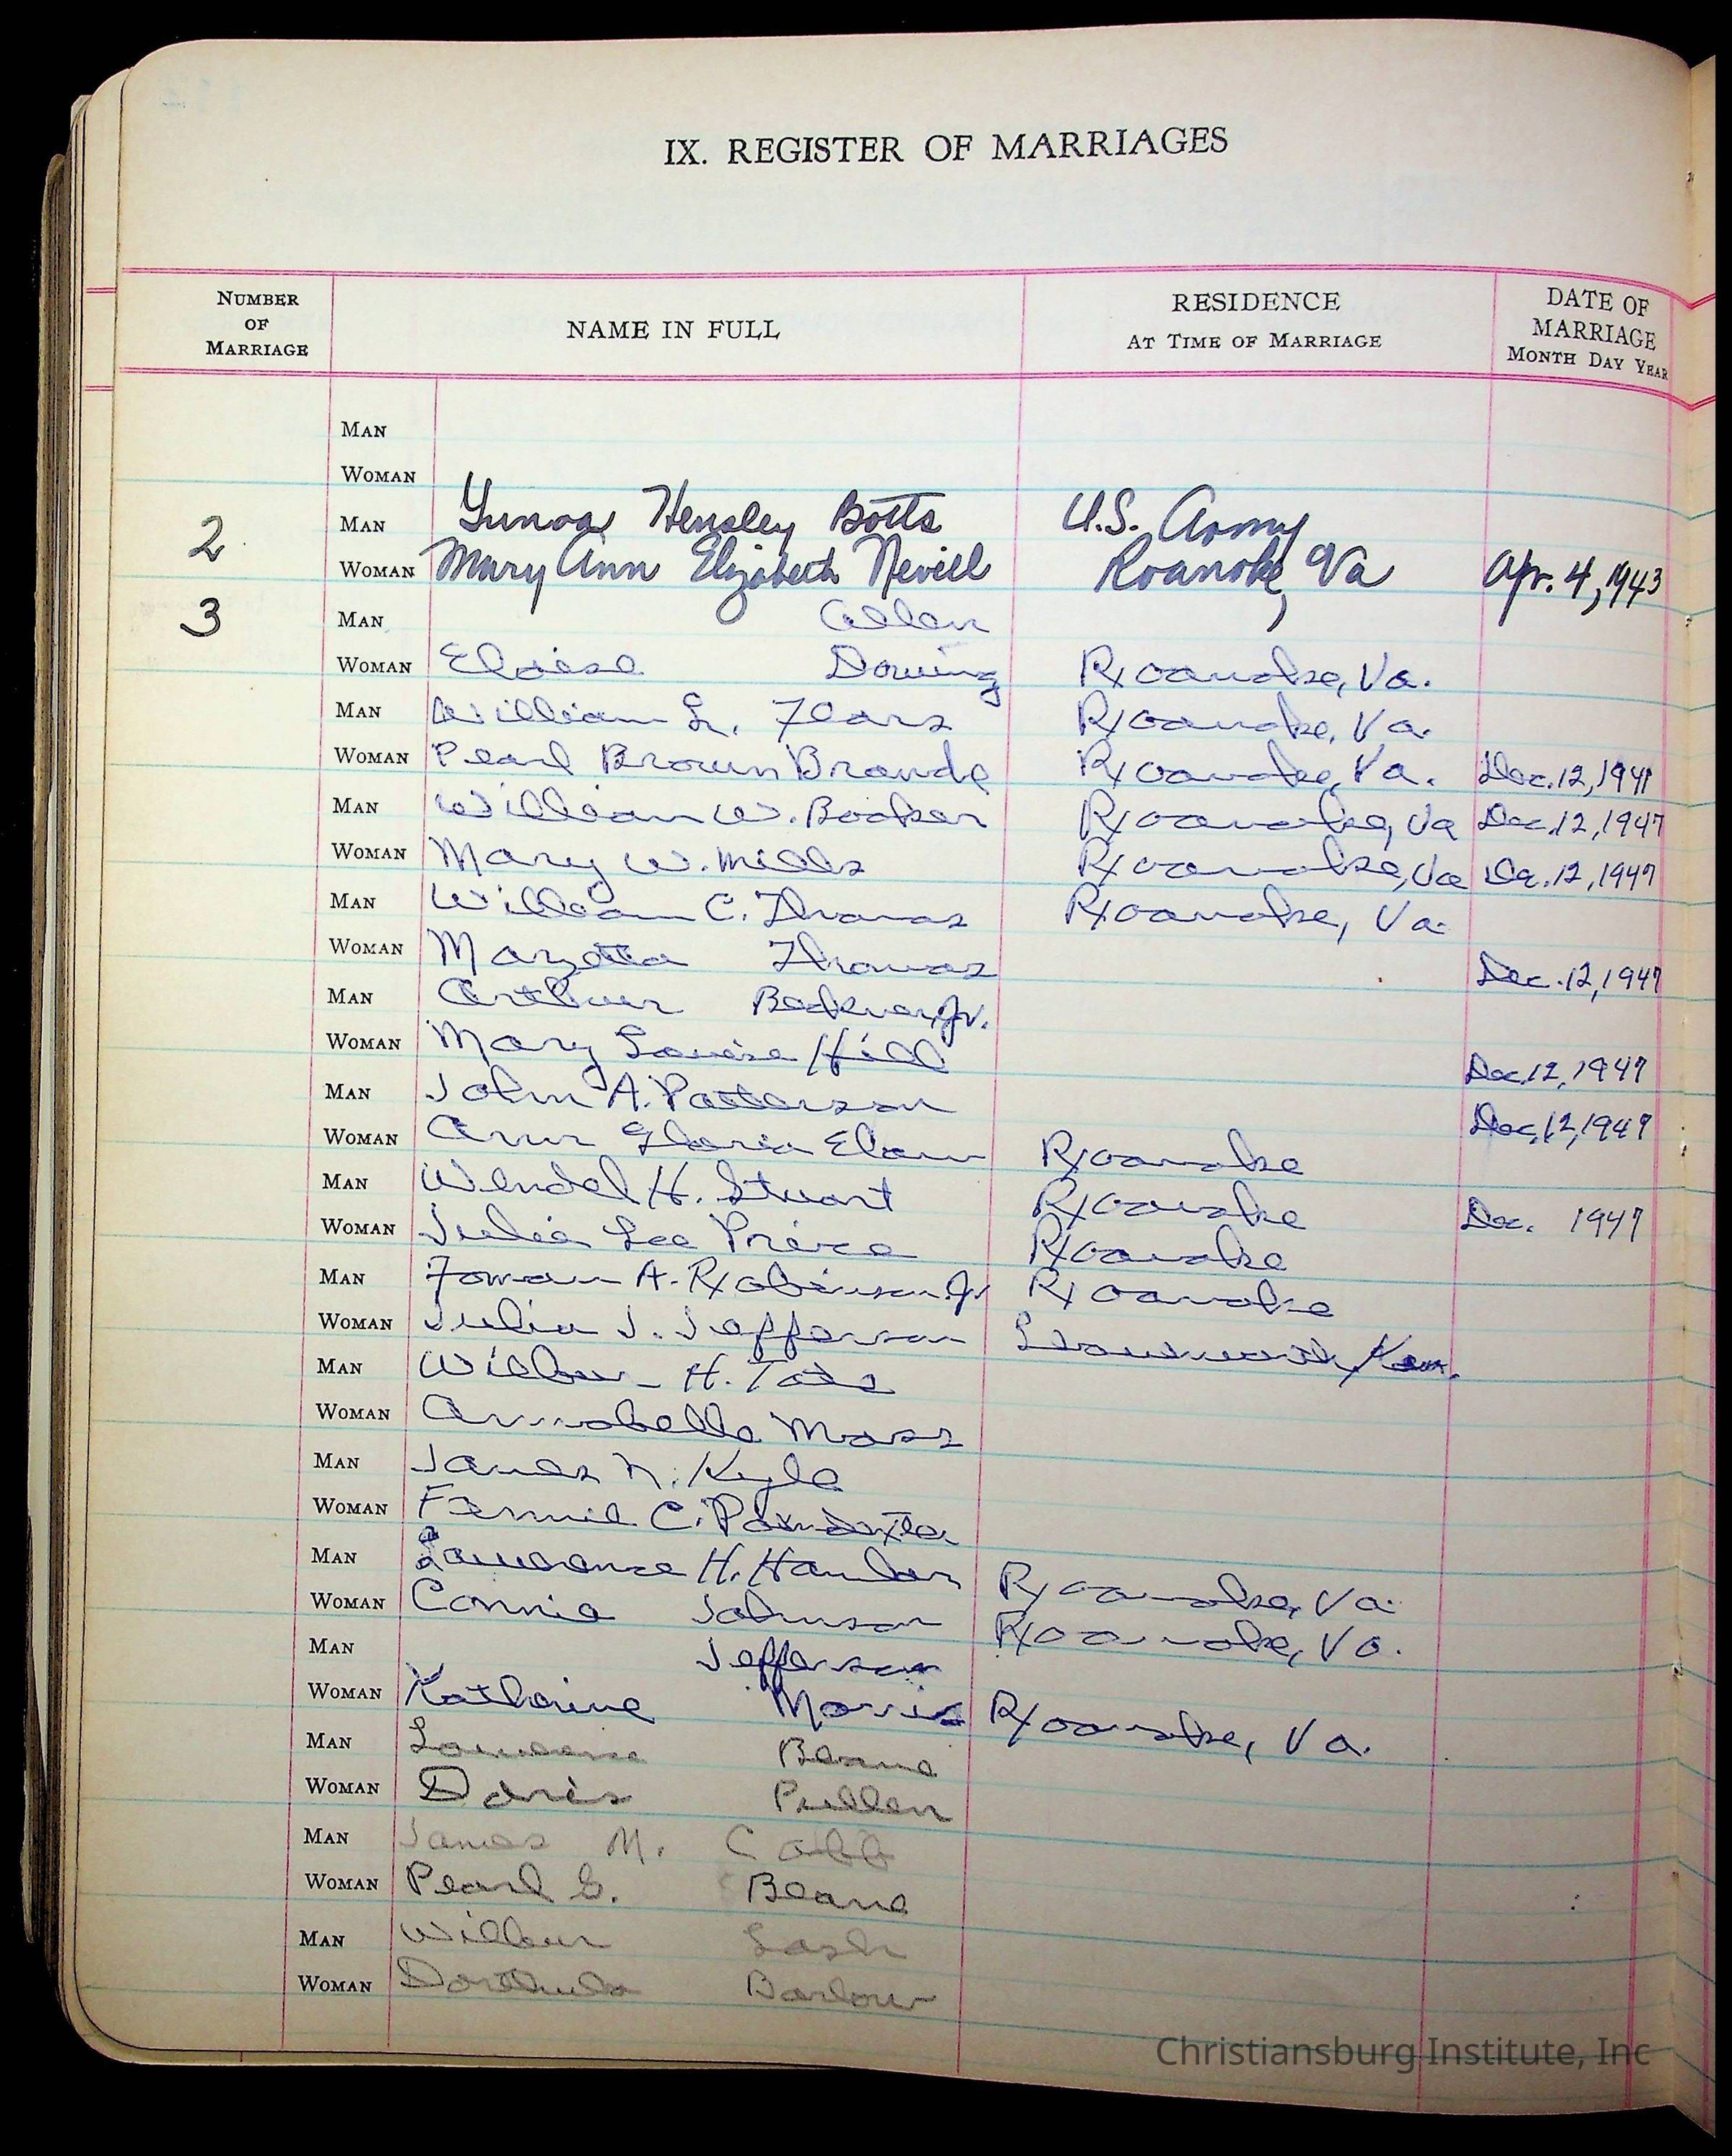 IX. REGISTER OF MARRIAGES
NUMBER OF MARRIAGE NAME IN FULL RESIDENCE AT TIME OF MARRIAGE DATE OF MARRIAGE MONTH DAY YEAR
MAN
WOMAN
2 MAN Hensley Botts U.S. Army
WOMAN Mary Ann Elizabeth Nevill Roanoke, Va Apr. 4, 1943
3 MAN Allen
WOMAN Eloise Dowing Roanoke, Va.
MAN William L. Fears Roanoke, Va.
WOMAN Pearl Brown Brande Roanoke, Va. Dec. 12, 1947
MAN William W. Booker Roanoke, Va Dec. 12, 1947
WOMAN Mary W. Mills Roanoke, Va Dec. 12, 1947
MAN William C. Thomas Roanoke, Va.
WOMAN Mazetta Thomas Dec. 12, 1947
MAN Arthur Jr.
WOMAN Mary Louise Hill Dec 12, 1947
MAN John A. Patterson Dec, 12, 1947
WOMAN Ann Gloria Elam Roanoke
MAN Wendel H. Stuart Roanoke Dec. 1947
WOMAN Julia Lee Price Roanoke
MAN A. Robinson Jr Roanoke
WOMAN Julia J. Jefferson
MAN Wilbur H.
WOMAN Annabelle Moss
MAN James N. Kyle
WOMAN Fennie C. Poindexter
MAN Lawrence H. Hamler Roanoke, Va.
WOMAN Connie Johnson Roanoke, Va.
MAN Jefferson
WOMAN Katherine Morris Roanoke, Va.
MAN Lawrence Beane
WOMAN Doris Pullen
MAN James M. Cobb
WOMAN Pearl G. Beane
MAN Wilbur Lash
WOMAN Barlow
Christiansburg Institute, Inc